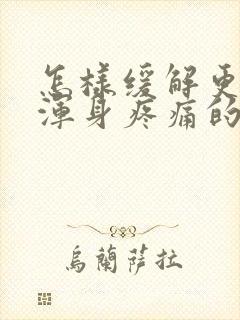 怎樣緩解更
渾身疼痛的
烏蘭薩拉